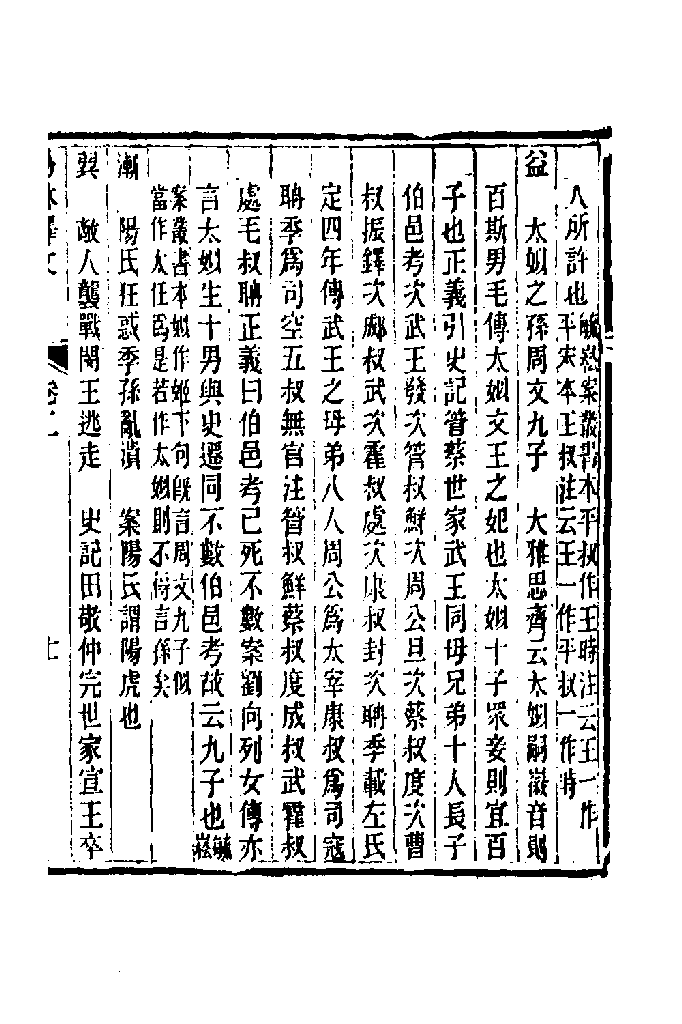 人所許也毓崧案叢書本平叔作王時注云王一作
平宋本王叔注云王一作平叔一作時
益　太姒之孫周文九子　大雅思齊云太姒嗣徽音則
百斯男毛傳太姒文王之妃也太姒十子眾妾則宜百
子也正義引史記管蔡世家武王同母兄弟十人長子
伯邑考次武王發次管叔鮮次周公旦次蔡叔度次曹
叔振鐸次郕叔武次霍叔處次康叔封次聃季載左氏
定四年傳武王之母弟八人周公為太宰康叔為司寇
聃季為司空五叔無官注管叔鮮蔡叔度成叔武霍叔
處毛叔聃正義曰伯邑考已死不數案劉向列女傳亦
言太姒生十男與史遷同不數伯邑考故云九子也毓崧
案叢書本姒作姬下句既言周文九子似
當作太任為是若作太姒則不得言孫矣
漸　陽氏狂惑季孫亂潰　案陽氏謂陽虎也
巽　敵人襲戰閔王逃走　史記田敬仲完世家宣王卒
易林釋文　卷二　七